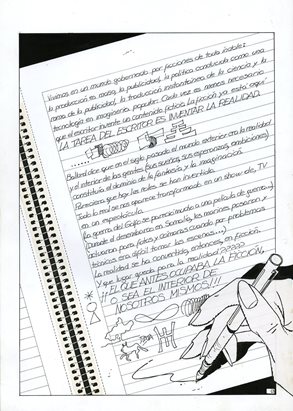 Vivimos en un mundo gobernado por ficciones de toda índole:
la producción en masa, la publicidad, la política conducida como una
rama de la publicidad, la traducción instantánea de la ciencia y la
tecnología en imaginería popular. Cada vez es menos necesario
que el escritor invente un contenido ficticio. La ficción ya está aquí.
LA TAREA DEL ESCRITOR ES INVENTAR LA REALIDAD.
Ballard dice que en el siglo pasado el mundo exterior era la realidad
y el interior de las gentes (sus sueños, sus esperanzas, ambiciones)
constituía el dominio de la fantasía y la imaginación.
Pareciera que hoy los roles se han invertido.
Todo lo real se nos aparece transformado en un show de TV
en un espectáculo.
La guerra del Golfo se parecía mucho a una película de guerra...)
Durante el desembarco en Somalia, los marines posaron y
actuaron para fotos y cámaras cuando por problemas
técnicos era difícil tomar las escenas...)
La realidad se ha convertido, entonces, en ficción.
Y qué lugar queda para la realidad?????
¡¡EL QUE ANTES OCUPABA LA FICCIÓN,
O SEA EL INTERIOR DE
NOSOTROS MISMOS!!!